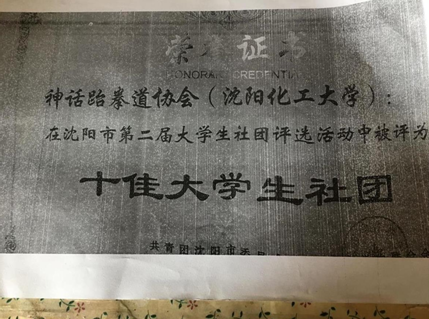 荣誉证书
HONORARY CREDENTIAL
神话跆拳道协会（沈阳化工大学）：
在沈阳市第二届大学生社团评选活动中被评为
十佳大学生社团
共青团沈阳市委